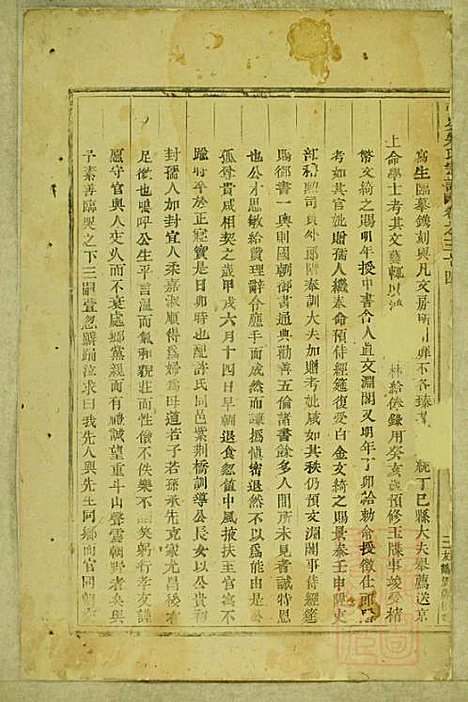 寫生臨摹鐫刻與凡文房所
統丁巳縣大夫舉薦送京
上命學士考其文藝
林給倦錄用癸亥預修玉牒事竣受楮
幣文綺之賜明年授中書舍人直文淵閣又明年丁卯給勅命授徵仕郎
考如其官妣贈孺人繼奉命預侍經筵復受白金文綺之賜景泰壬申陞吏
部稽勳司員外郎階奉訓大夫加贈考妣咸如其秩仍預文淵閣事侍經筵
賜御書一與則國朝御書通典勸善五倫諸書餘多人間所未見者誠特恩
也公才思敏給贊理辭令應手而成然而謙撝慎密退然不以為能由
孤卿貴戚相契之歲甲戌六月十四日早朝退食齠值中風披扶主官寓不
踰時卒於正寢實是日卯時也配許氏同邑紫荊橋訓導公長女以公貴初
封孺人加封宜人柔嘉淑順得為婦為母道若子若孫承先克家尤昌後有
足徵者也嗚呼公生平言溫而氣和觀莊而性僧不佚樂不
笑躬行孝友謹
愿守官與人交久而不衰處鄉黨親而有禮誠望重斗山聲震朝野者矣與
子素善臨哭之下三嗣萱忽辭踊泣求曰我先人與先生同鄉而官同朝